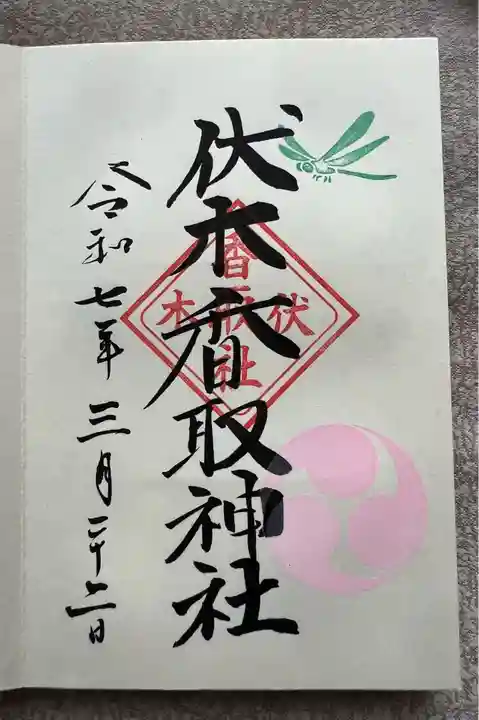 伏木香取神社
令和七年三月二十二日
香取社
伏木